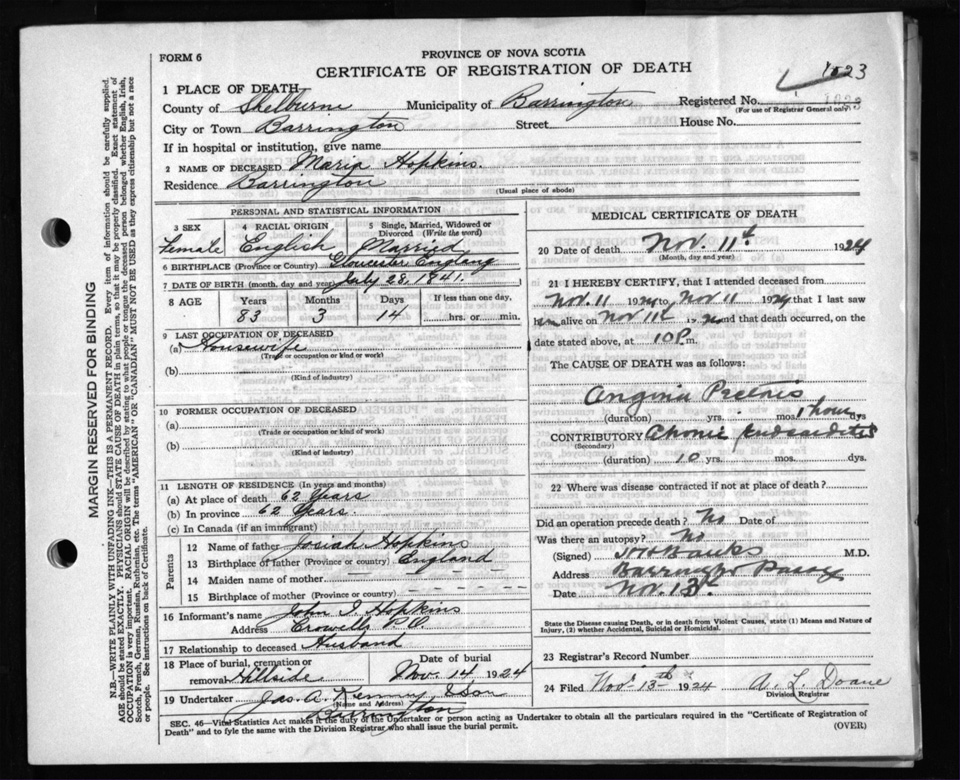 FORM 6
PROVINCE OF NOVA SCOTIA
CERTIFICATE OF REGISTRATION OF DEATH
1023
1 PLACE OF DEATH
County of Shelburne Municipality of Barrington Registered No. 1023
(For use of Registrar General only)
City or Town Barrington Street House No.
If in hospital or institution, give name
2 NAME OF DECEASED Maria Hopkins.
Residence Barrington
(Usual place of abode)
PERSONAL AND STATISTICAL INFORMATION
3 SEX 4 RACIAL ORIGIN 5 Single, Married, Widowed or Divorced (Write the word)
Female English Married
6 BIRTHPLACE (Province or Country) Gloucester England
7 DATE OF BIRTH (month, day and year) July 28, 1841.
8 AGE Years Months Days If less than one day,
83 3 14 hrs. or min.
9 LAST OCCUPATION OF DECEASED
(a) Housewife
(Trade or occupation or kind of work)
(b)
(Kind of industry)
10 FORMER OCCUPATION OF DECEASED
(a)
(Trade or occupation or kind of work)
(b)
(Kind of industry)
11 LENGTH OF RESIDENCE (In years and months)
(a) At place of death 62 Years
(b) In province 62 Years.
(c) In Canada (if an immigrant)
Parents
12 Name of father Josiah Hopkins
13 Birthplace of father (Province or country) England
14 Maiden name of mother
15 Birthplace of mother (Province or country)
16 Informant's name John I Hopkins
Address Crowells P.O.
17 Relationship to deceased Husband
18 Place of burial, cremation or removal Hillside Date of burial Nov. 14, 1924
19 Undertaker Jas. A. Kenney & Son
(Name and Address)
Barrington
MEDICAL CERTIFICATE OF DEATH
20 Date of death Nov. 11th 1924
(Month, day and year)
21 I HEREBY CERTIFY, that I attended deceased from
Nov. 11 1924 to Nov 11 1924 that I last saw
alive on Nov 11th and that death occurred, on
date stated above, at 10 P m.
The CAUSE OF DEATH was as follows:
Angina Pectoris
(duration) yrs. mos. 1 hour dys
CONTRIBUTORY Chronic
(Secondary)
(duration) 10 yrs. mos. dys.
22 Where was disease contracted if not at place of death?
Did an operation precede death? No Date of
Was there an autopsy? No
(Signed) Banks M.D.
Address Barrington Passage
Date Nov. 13th
State the Disease causing Death, or in death from Violent Causes, state (1) Means and Nature of Injury, (2) whether Accidental, Suicidal or Homicidal.
23 Registrar's Record Number
24 Filed Nov. 13th 1924 A. L. Doane
Division Registrar
SEC. 46—Vital Statistics Act makes it the duty of the Undertaker or person acting as Undertaker to obtain all the particulars required in the "Certificate of Registration of
Death" and to fyle the same with the Division Registrar who shall issue the burial permit.
(OVER)
MARGIN RESERVED FOR BINDING
N.B.—WRITE PLAINLY WITH UNFADING INK—THIS IS A PERMANENT RECORD. Every item of information should be carefully supplied.
AGE should be stated EXACTLY. PHYSICIANS should STATE CAUSE OF DEATH in plain terms, so that it may be properly classified. Exact statement of
OCCUPATION is very important. RACIAL ORIGIN will be described by stating to what people or tongue the deceased person belonged whether English, Irish,
Scotch, French, German, Russian, Ruthenian, etc. The terms "AMERICAN" OR "CANADIAN" MUST NOT BE USED as they express citizenship but not a race
or people. See instructions on back of Certificate.